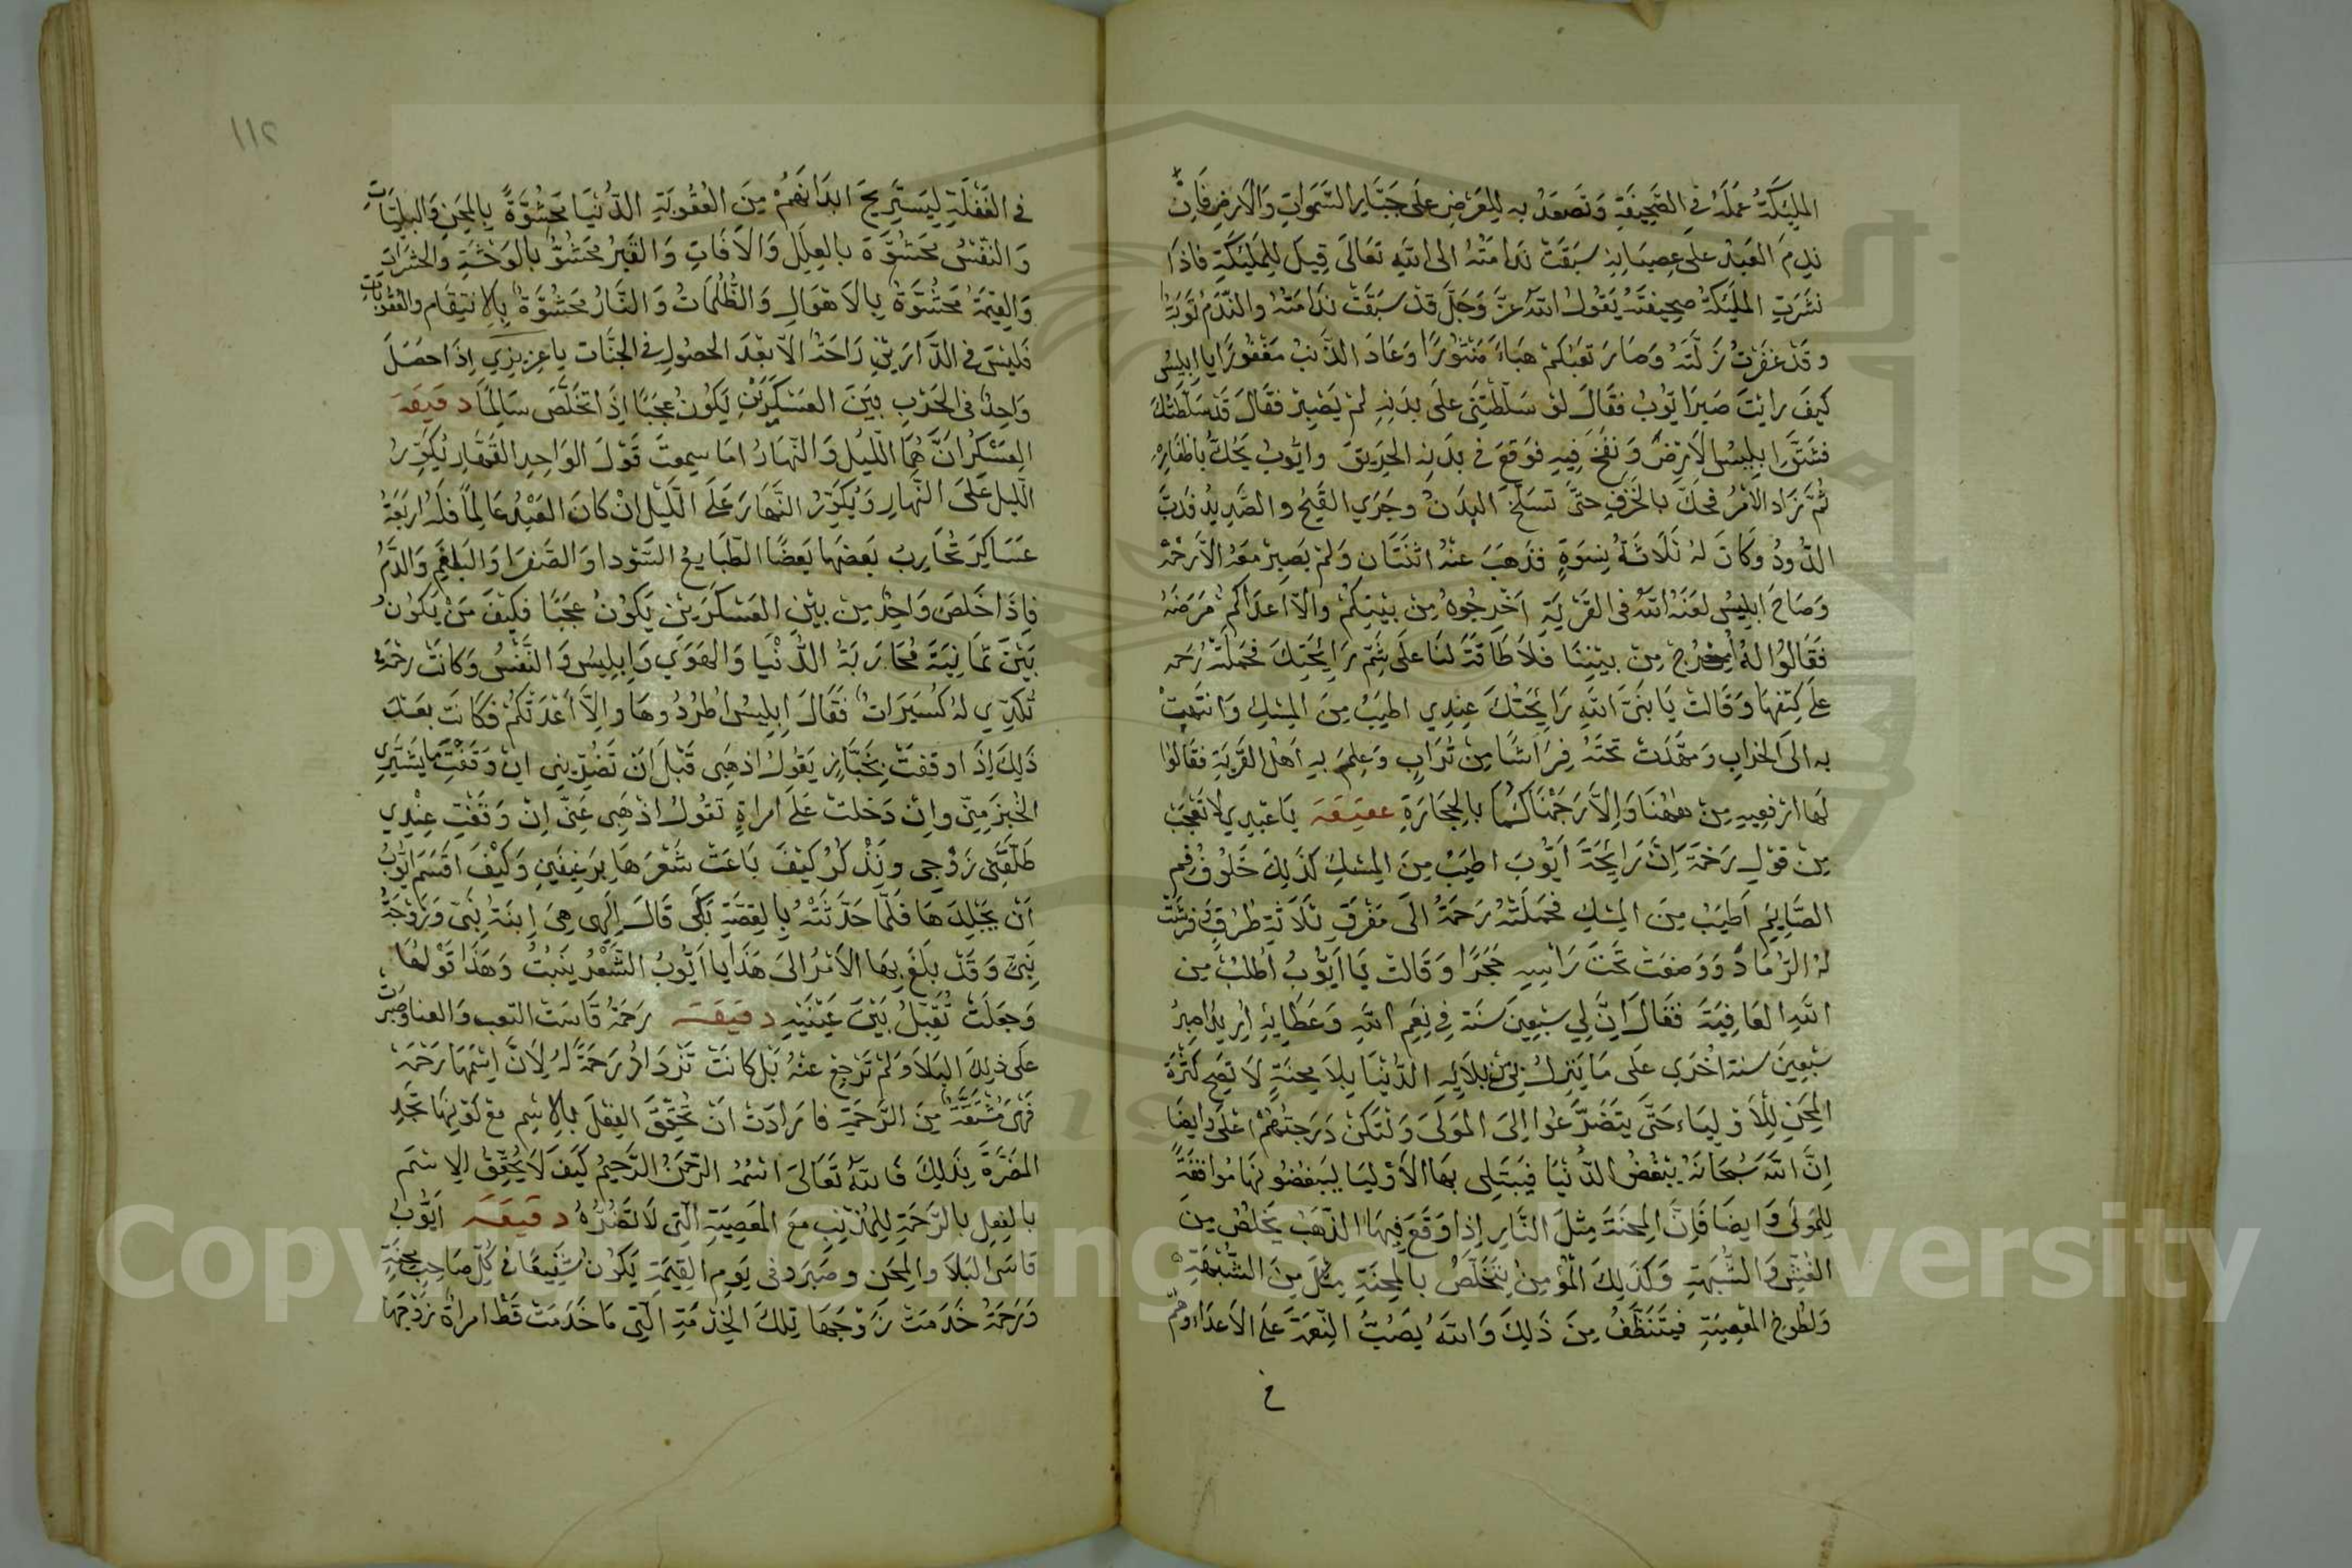 المليكة عمله في الصحيفة وتصعد به للعرض على جبار السموات والارض فان
ندم العبد على عصيانه سبقت ندامته الى الله تعالى قيل للمليكة فاذا
نشرت المليكة صحيفته يقول الله عز وجل قد سبقت ندامته والندم توبة
وقد غفرت زلته وصار تعبكم هباء منثورا وعاد الذنب مغفورا يا ابليس
كيف رايت صبر ايوب فقال لو سلطتني على بدنه لم يصبر فقال قد سلطتك
فشق ابليس الارض ونفخ فيه فوقع في بدنه الحريق وايوب يحك باظفاره
ثم زاد الامر فحك بالخزف حتى تسلخ البدن وجري القيح والصديد فدب
الدود وكان له ثلاثة نسوة فذهب عنه اثنتان ولم يصبر معه الا رحمة
وصاح ابليس لعنه الله في القرية اخرجوه من بينكم والا اعداكم مرضه
فقالوا له اخرج من بيننا فلا طاقة لنا على شم رايحتك فحملته رحمه
على كتفها وقالت يا نبي الله رايحتك عندي اطيب من المسك وانتهت
به الى الخراب ومهدت تحته فراشا من تراب وعلم به اهل القرية فقالوا
لها ارفعيه من ههنا والا رجمناكما بالحجارة عقيقة يا عبدي لا تعجب
من قول رحمة ان رايحة ايوب اطيب من المسك كذلك خلوف فم
الصايم اطيب من المسك فحملته رحمة الى مفرق ثلاثة طرق وفرشت
له الرماد ووضعت تحت راسه حجرا وقالت يا ايوب اطلب من
الله العافية فقال ان لي سبعين سنة في نعم الله وعطايه اريد اصبر
سبعين سنة اخري على ما ينزل بي من بلايه الدنيا بلا محنة لا تصح كثرة
المحن للاولياء حتى يتضرعوا الى المولى ولتكن درجتهم اعلى وايضا
ان الله سبحانه يبغض الدنيا فيبتلى بها الاوليا يبغضونها موافقة
للمولى وايضا فان المحنة مثل النار اذا وقع فيها الذهب يخلص من
الغش والشبهة وكذلك المؤمن يتخلص بالمحنة مثل من الشبهة
ولطوخ المعصية فيتنظف من ذلك والله يصب النعمة على الاعداء وهم
في الغفلة ليستريح ابدانهم من العقوبة الدنيا محشوة بالمحن والبليات
والنفس محشوة بالعلل والآفات والقبر محشو بالوحشة والحشرات
والقيمة محشوة بالاهوال والظلمات والنار محشوة بالانتقام والعقوبات
فليس في الدارين راحة الا بعد الحصول في الجنات يا عزيزي اذا حصل
واحد في الحرب بين العسكرين يكون عجبا اذا تخلص سالما دقيقة
العسكران هما الليل والنهار اما سمعت قول الواحد القهار يكور
الليل على النهار ويكور النهار على الليل ان كان العبد عالما فله اربعة
عساكر تحارب بعضها بعضا الطبايع السودا والصفرا والبلغم والدم
فاذا خلص واحد من بين العسكرين يكون عجبا فكيف من يكون
بين ثمانية محاربة الدنيا والهوي وابليس والنفس وكانت رحمة
تكدي له كسيرات فقال ابليس اطردوها والا اعدتكم فكانت بعد
ذلك اذا وقفت بخباز يقول اذهبي قبل ان تضريني ان وقفت ما يشتري
الخبز مني وان دخلت على امراة تقول اذهبي عني ان وقفت عندي
طلقني زوجي ونذكر كيف باعت شعرها برغيفين وكيف اقسم ايوب
ان يجلدها فلما حدثته بالقصة بكى قال الهي هي ابنة نبي وزوجة
نبي وقد بلغ بها الامر الى هذا يا ايوب الشعر ينبت وهذا قولها
وجعلت تقبل بين عينيه دقيقة رحمة قاست التعب والعنا وصبرت
على ذلك البلا ولم ترجع عنه بل كانت تزداد رحمة له لان اسمها رحمة
فهي مشتقة من الرحمة فارادت ان تحقق الفعل بالاسم مع كونها تجد
المضرة بذلك فالله تعالى اسمه الرحمن الرحيم كيف لا يحقق الاسم
بالفعل بالرحمة للمذنب مع المعصية التي لا تضره دقيقة ايوب
قاسى البلا والمحن وصبر وفي يوم القيمة يكون شفيعا في كل صاحب محنة
ورحمة خدمت زوجها تلك الخدمة التي ما خدمت قط امراة زوجها
٢١١
Copyright © King Saud University
1957